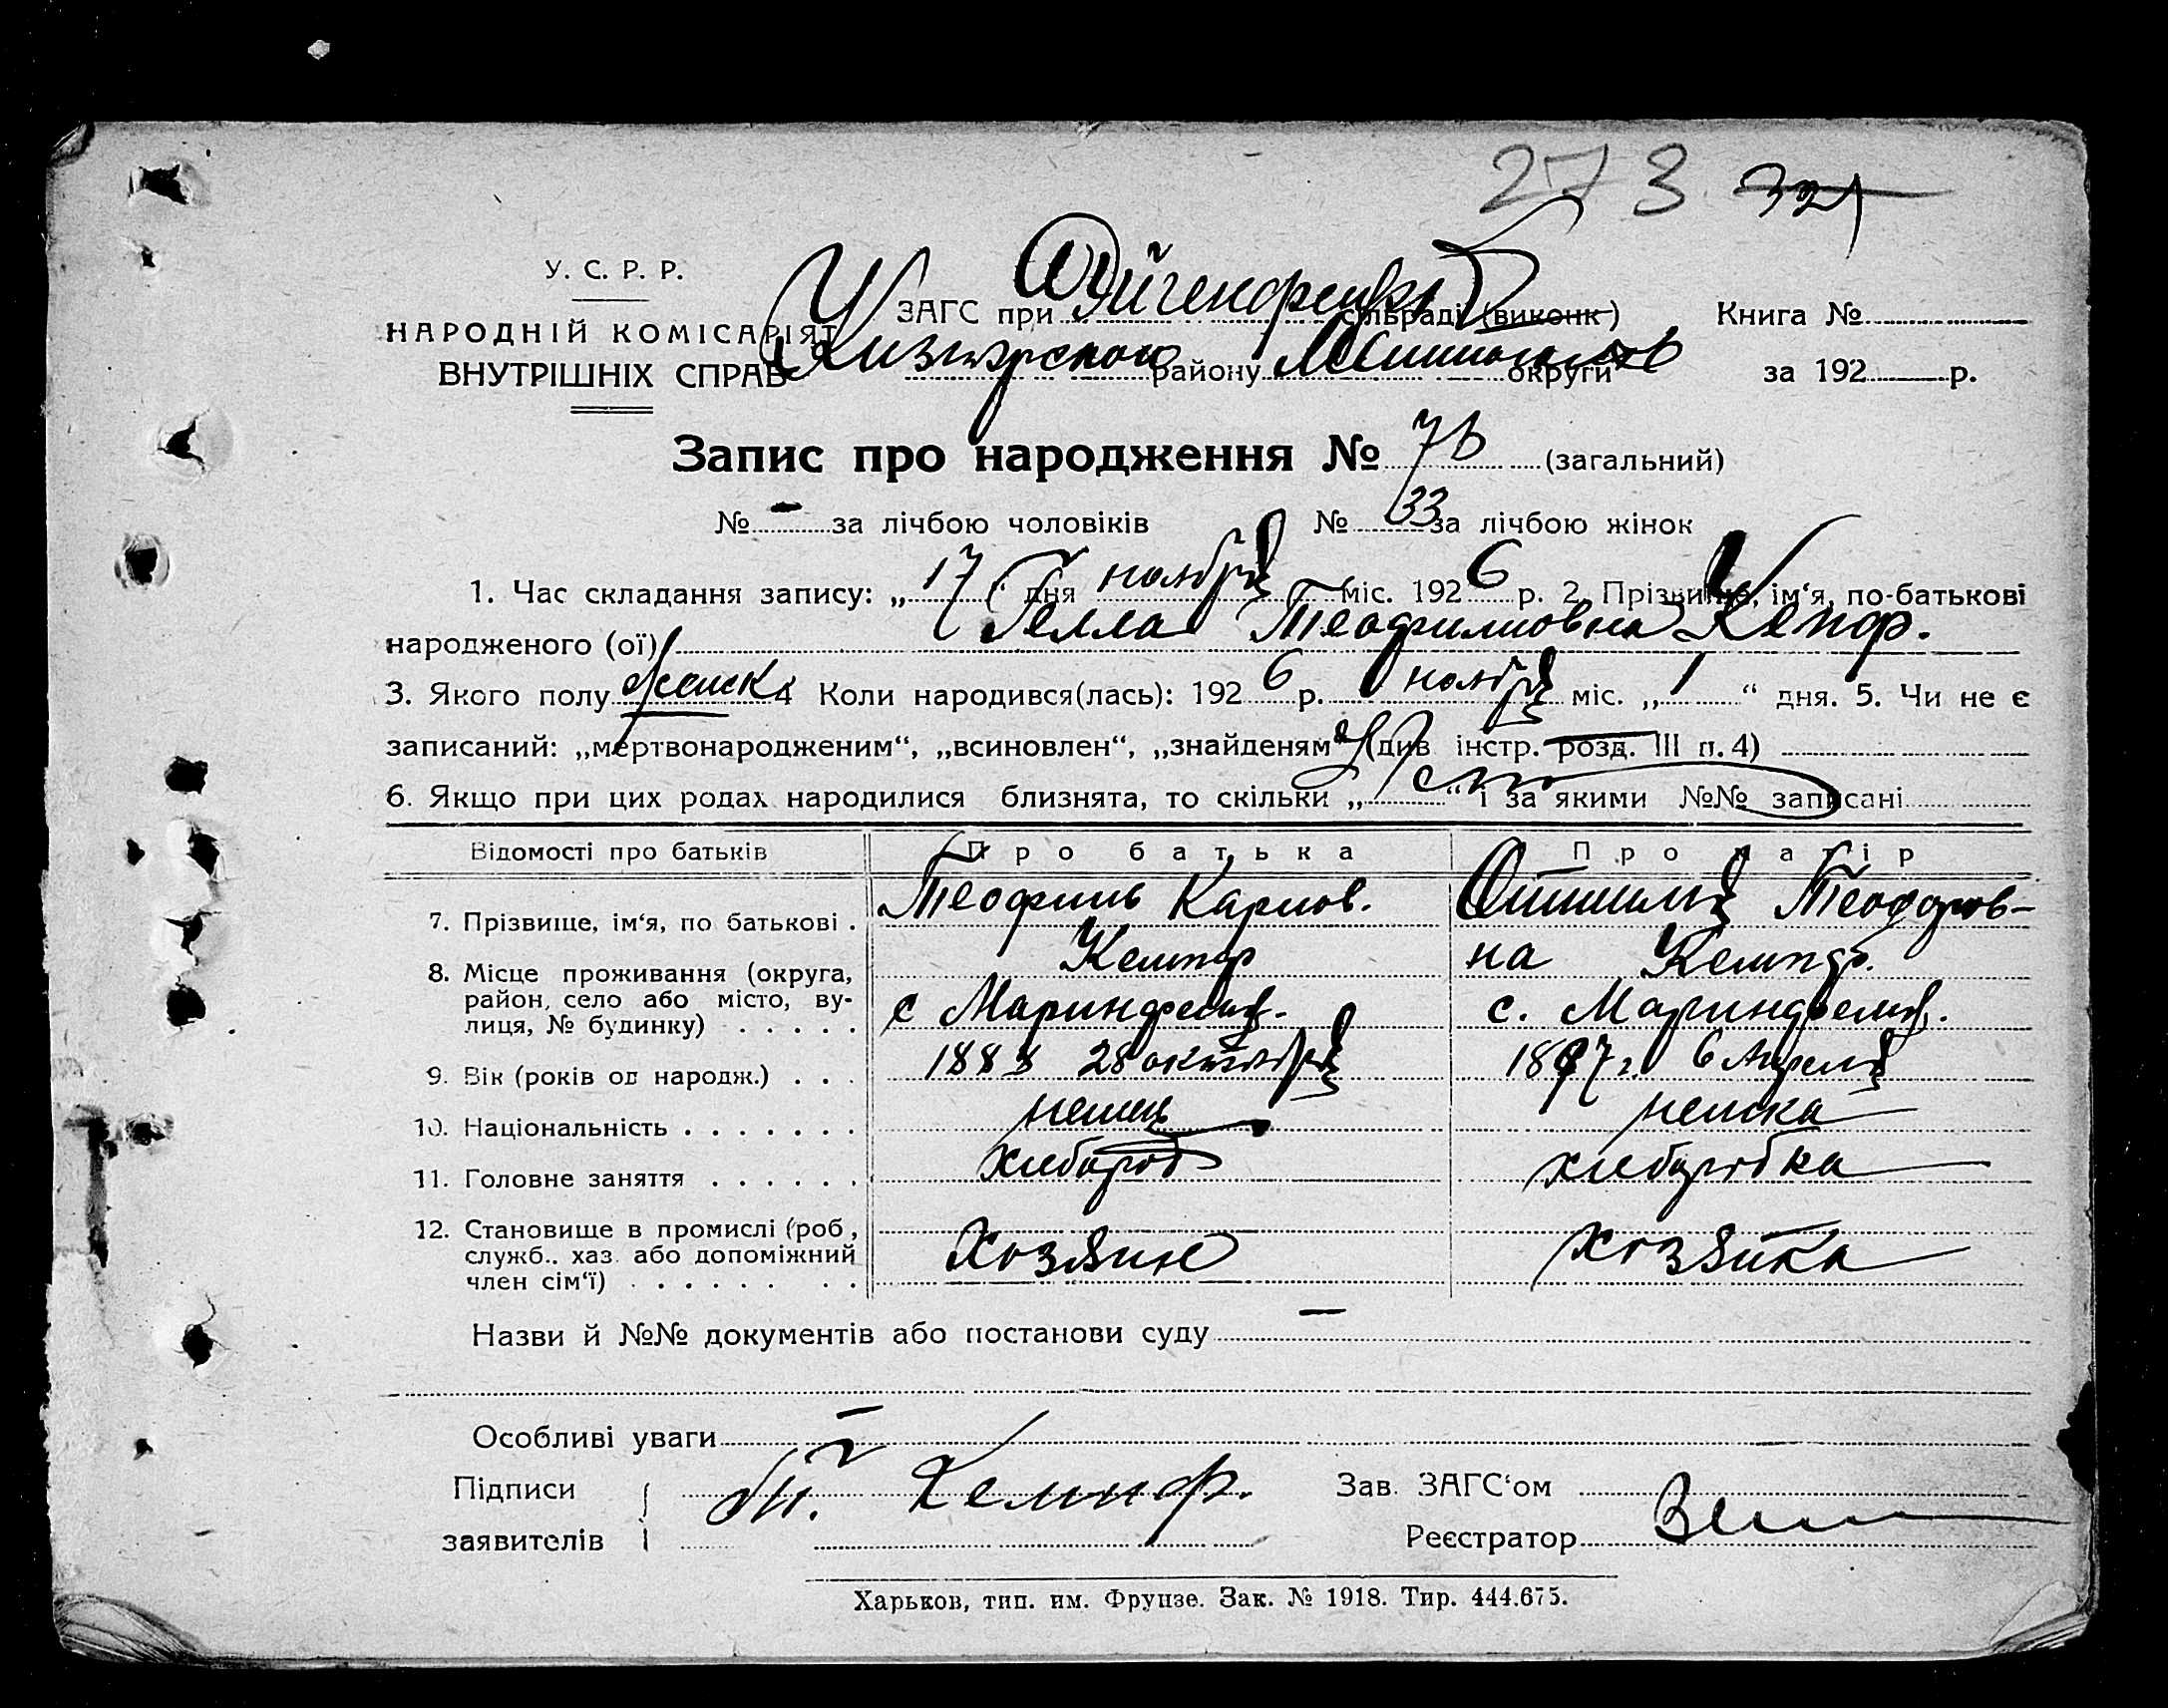 273 321
У. С. Р. Р.
НАРОДНІЙ КОМІСАРІЯТ
ВНУТРІШНІХ СПРАВ
ЗАГС при сільраді (виконк) Книга №
району округи за 192 р.
Запис про народження № 76 (загальний)
№ - за лічбою чоловіків № 33 за лічбою жінок
1. Час складання запису: „17“ дня ноября міс. 1926 р. 2. Прізвище, ім‘я, по-батькові
народженого (ої) Гелла Теофиловна Кепф.
3. Якого полу женск 4 Коли народився(лась): 1926 р. ноября міс. „1“ дня. 5. Чи не є
записаний: „мертвонародженим“, „всиновлен“, „знайденям“ (див інстр. розд. III п. 4)
6. Якщо при цих родах народилися близнята, то скільки „ “ і за якими №№ записані
Відомості про батьків Про батька Про матір
7. Прізвище, ім‘я, по батькові . Теофиль Карлов. Оттилия Теодоров-
Кемпф на Кемпф.
8. Місце проживання (округа,
район, село або місто, ву-
лиця, № будинку) . . . . . с Мариенфельд. с. Мариенфельд.
9. Вік (років од народж.) . . . 1883 28 октября 1897 г. 6 Апреля
10. Національність . . . . . . . немец немка
11. Головне заняття . . . . . . хлебороб хлеборобка
12. Становище в промислі (роб,
служб.. хаз. або допоміжний
член сім‘ї) . . . . . . . . Хозяин хозяйка
Назви й №№ документів або постанови суду —
Особливі уваги —
Підписи
заявителів Т. Кемпф.
Зав. ЗАГС‘ом
Реєстратор
Харьков, тип. им. Фрунзе. Зак. № 1918. Тир. 444.675.